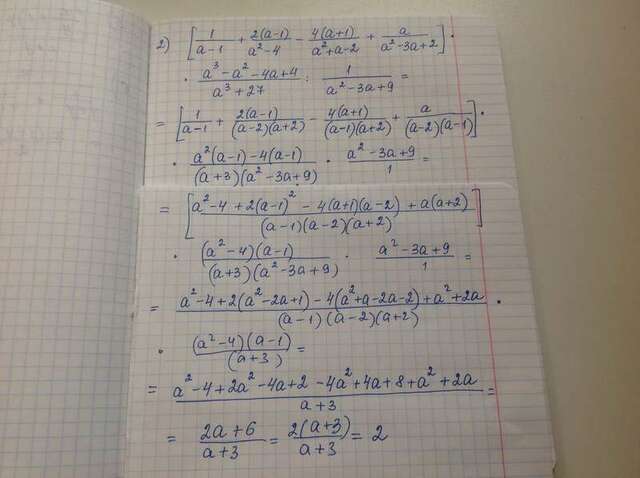 2) [1/(a-1) + 2(a-1)/(a²-4) - 4(a+1)/(a²+a-2) + a/(a²-3a+2)] ·
· (a³-a²-4a+4)/(a³+27) : 1/(a²-3a+9) =
= [1/(a-1) + 2(a-1)/((a-2)(a+2)) - 4(a+1)/((a-1)(a+2)) + a/((a-2)(a-1))] ·
· (a²(a-1)-4(a-1))/((a+3)(a²-3a+9)) · (a²-3a+9)/1 =
= [(a²-4+2(a-1)²-4(a+1)(a-2)+a(a+2))/((a-1)(a-2)(a+2))]
· ((a²-4)(a-1))/((a+3)(a²-3a+9)) · (a²-3a+9)/1 =
= (a²-4+2(a²-2a+1)-4(a²+a-2a-2)+a²+2a)/((a-1)(a-2)(a+2)) ·
· ((a²-4)(a-1))/(a+3) =
= (a²-4+2a²-4a+2-4a²+4a+8+a²+2a)/(a+3) =
= (2a+6)/(a+3) = (2(a+3))/(a+3) = 2